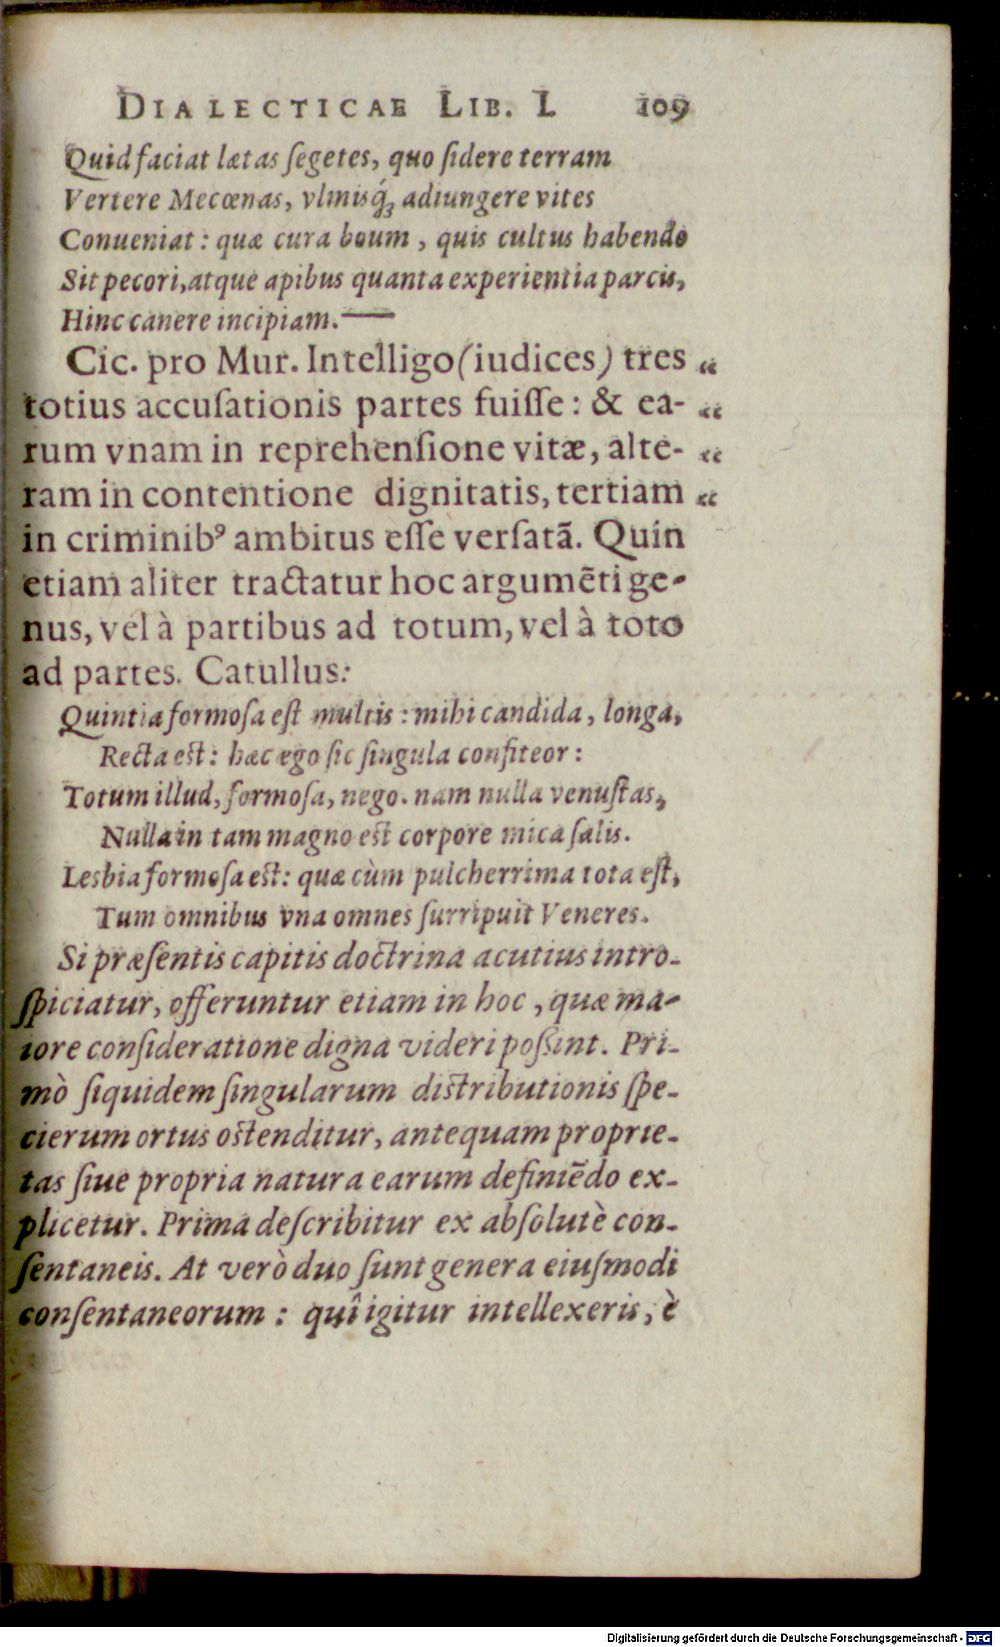 DIALECTICAE LIB. I. 109
Quid faciat lætas ſegetes, quo ſidere terram
Vertere Mecœnas, vlmisq́ꝫ adiungere vites
Conueniat: quæ cura boum, quis cultus habendo
Sit pecori, atque apibus quanta experientia parcis,
Hinc canere incipiam.——
Cic. pro Mur. Intelligo (iudices) tres “
totius accuſationis partes fuiſſe: & ea- “
rum vnam in reprehenſione vitæ, alte- “
ram in contentione dignitatis, tertiam “
in criminibꝰ ambitus eſſe verſatã. Quin
etiam aliter tractatur hoc argumẽti ge-
nus, vel à partibus ad totum, vel à toto
ad partes. Catullus:
Quintia formoſa eſt multis: mihi candida, longa,
Recta est: hæc ego ſic ſingula confiteor:
Totum illud, formoſa, nego. nam nulla venuſtas,
Nulla in tam magno est corpore mica ſalis.
Lesbia formoſa est: quæ cùm pulcherrima tota eſt,
Tum omnibus vna omnes ſurripuit Veneres.
Si præſentis capitis doctrina acutius intro-
ſpiciatur, offeruntur etiam in hoc, quæ ma-
iore conſideratione digna videri poſsint. Pri-
mò ſiquidem ſingularum distributionis ſpe-
cierum ortus ostenditur, antequam proprie-
tas ſiue propria natura earum definiẽdo ex-
plicetur. Prima deſcribitur ex abſolutè con-
ſentaneis. At verò duo ſunt genera eiuſmodi
conſentaneorum: quî igitur intellexeris, è
Digitalisierung gefördert durch die Deutsche Forschungsgemeinschaft - DFG